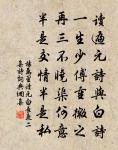 讀徧元詩與白詩
一生少傅重微之
再三不曉渠何意
半是交情半是私
讀元白長慶二
集詩